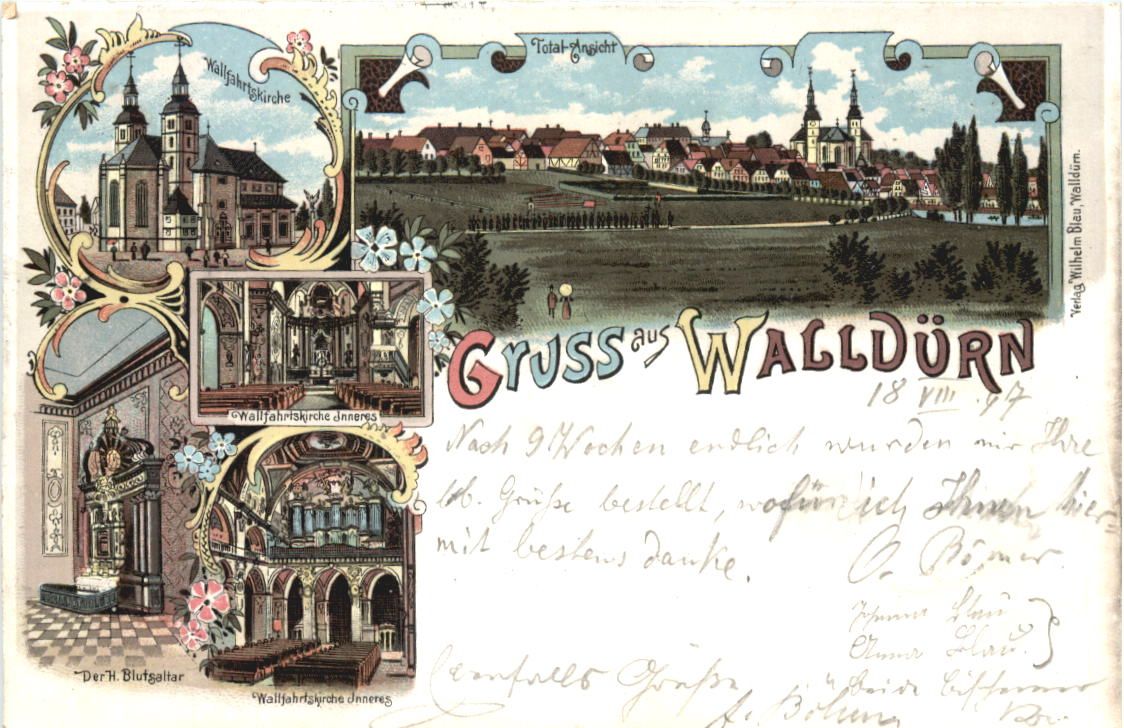 Wallfahrtskirche
Total-Ansicht
Verlag Wilhelm Blau, Walldürn.
Gruss aus Walldürn
Wallfahrtskirche Inneres
Der H. Blutsaltar
Wallfahrtskirche Inneres
18 VIII. 97
Nach 9 Wochen endlich wurden mir Ihre
lb. Grüße bestellt, wofür ich Ihnen hier-
mit bestens danke.
O. Bömer
Blau
Anna Blau
Ebenfalls Grüße
beide